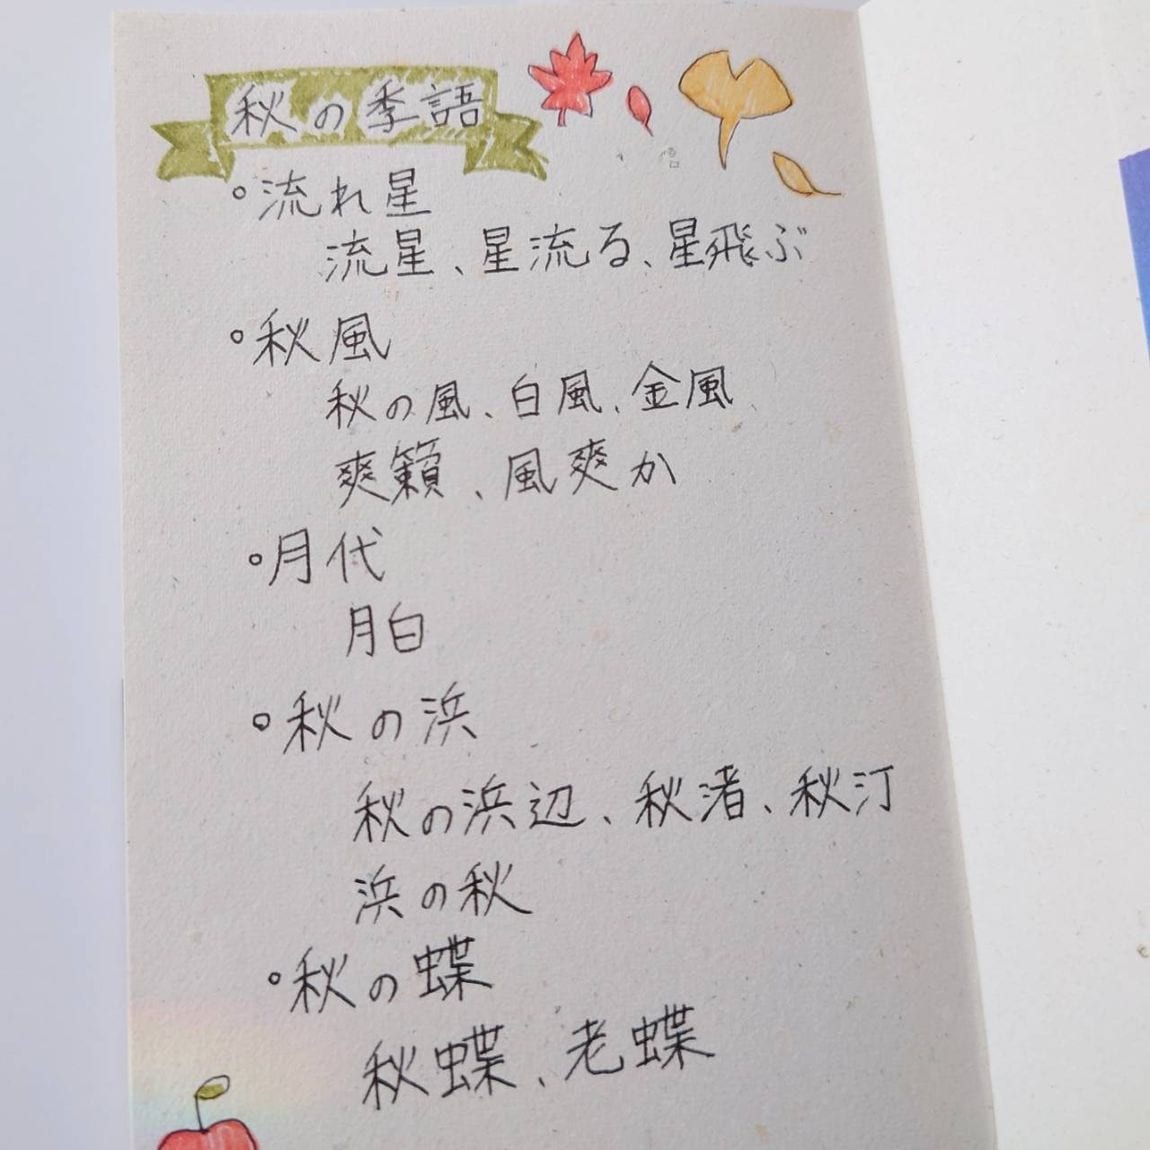 秋の季語
°流れ星
流星、星流る、星飛ぶ
°秋風
秋の風、白風、金風
爽籟、風爽か
°月代
月白
°秋の浜
秋の浜辺、秋渚、秋汀
浜の秋
°秋の蝶
秋蝶、老蝶